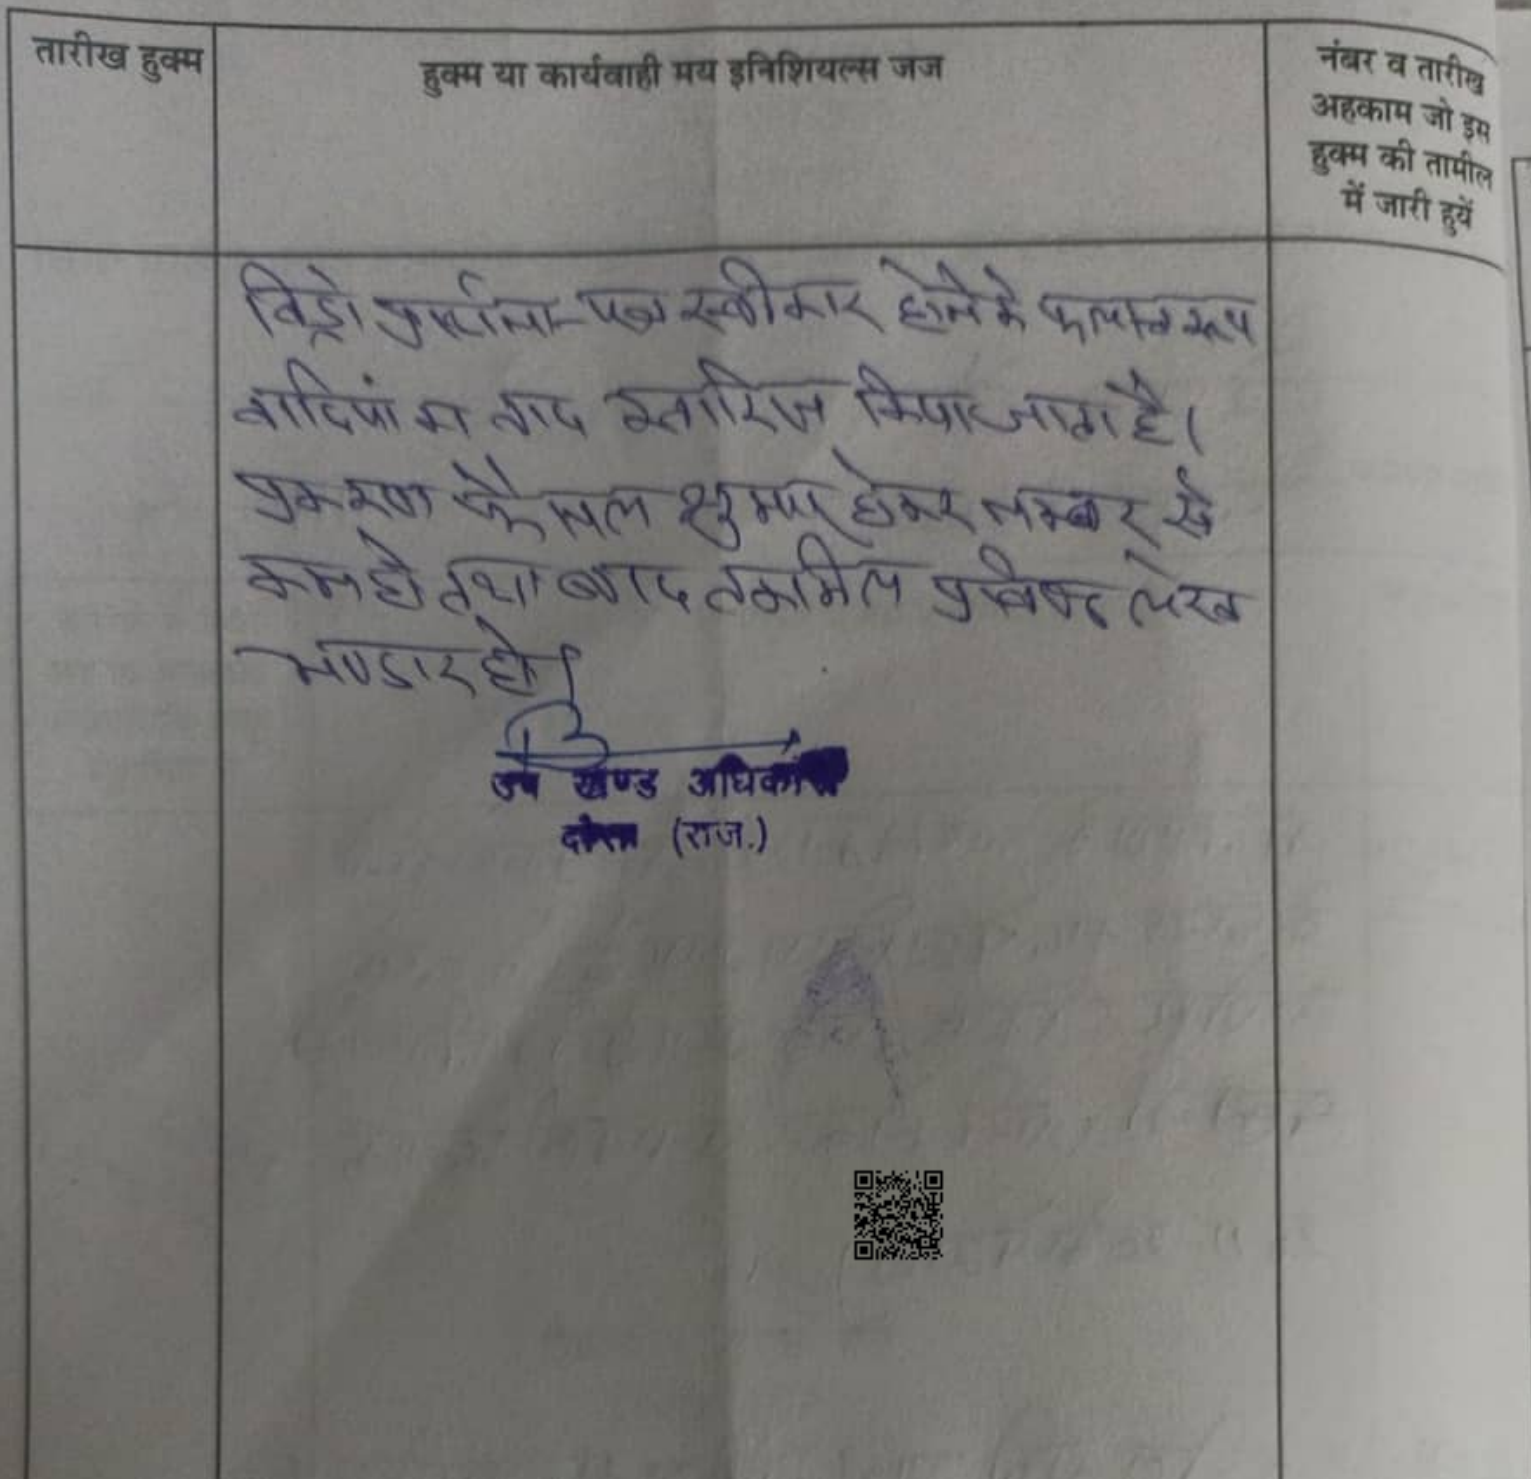 तारीख हुक्म
हुक्म या कार्यवाही मय इनिशियल्स जज
नंबर व तारीख
अहकाम जो इस
हुक्म की तामील
में जारी हुयें
विड्रो प्रार्थना-पत्र स्वीकार होने के फलस्वरूप
वादिया का वाद खारिज किया जाता है।
प्रकरण फैसल शुमार होकर नम्बर से
कम हो तथा बाद तकमिल प्रविष्ट लेख
भण्डार हो।
उप खण्ड अधिकारी
(राज.)